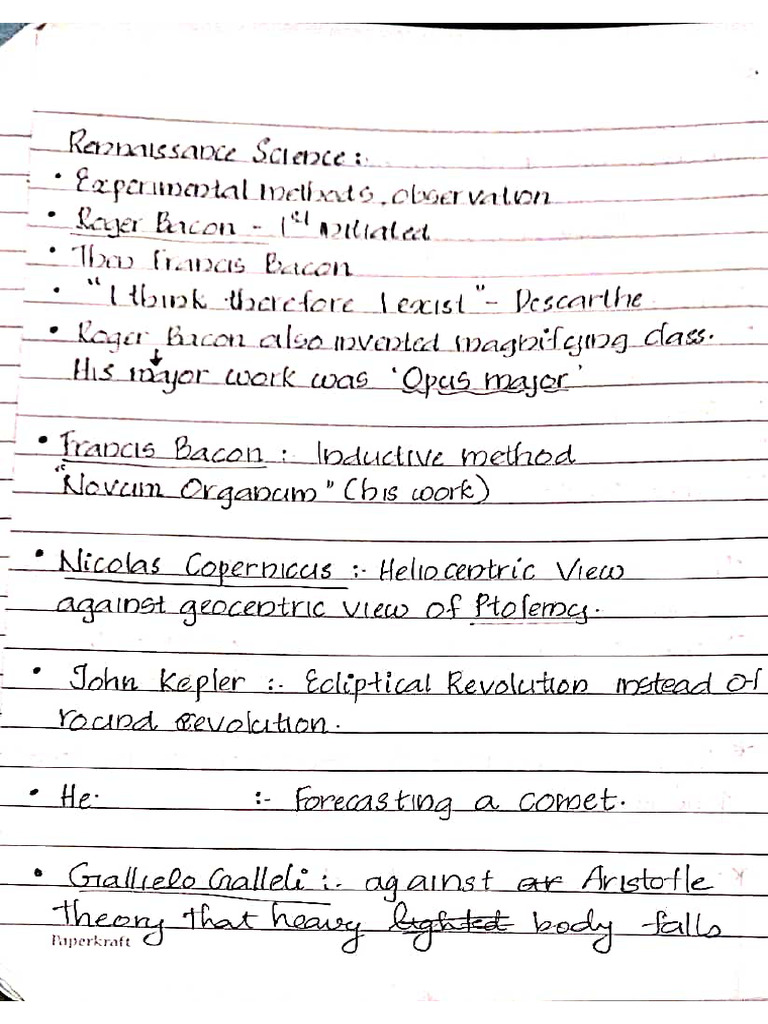 Rennaissance Science :.
• Experimental methods, observation
• Roger Bacon - 1st initiated
• Then Francis Bacon
• "I think therefore I exist" - Descarthe
• Roger Bacon also invented magnifying class.
His major work was 'Opus major'
• Francis Bacon : Inductive method
"Novum Organum" (his work)
• Nicolas Copernicus :- Heliocentric View
against geocentric view of Ptolemy.
• John Kepler :- Ecliptical Revolution instead of
round revolution.
• He. :- Forecasting a comet.
• Gallielo Galleli :- against ar Aristotle
theory that heavy lighted body falls
Paperkraft